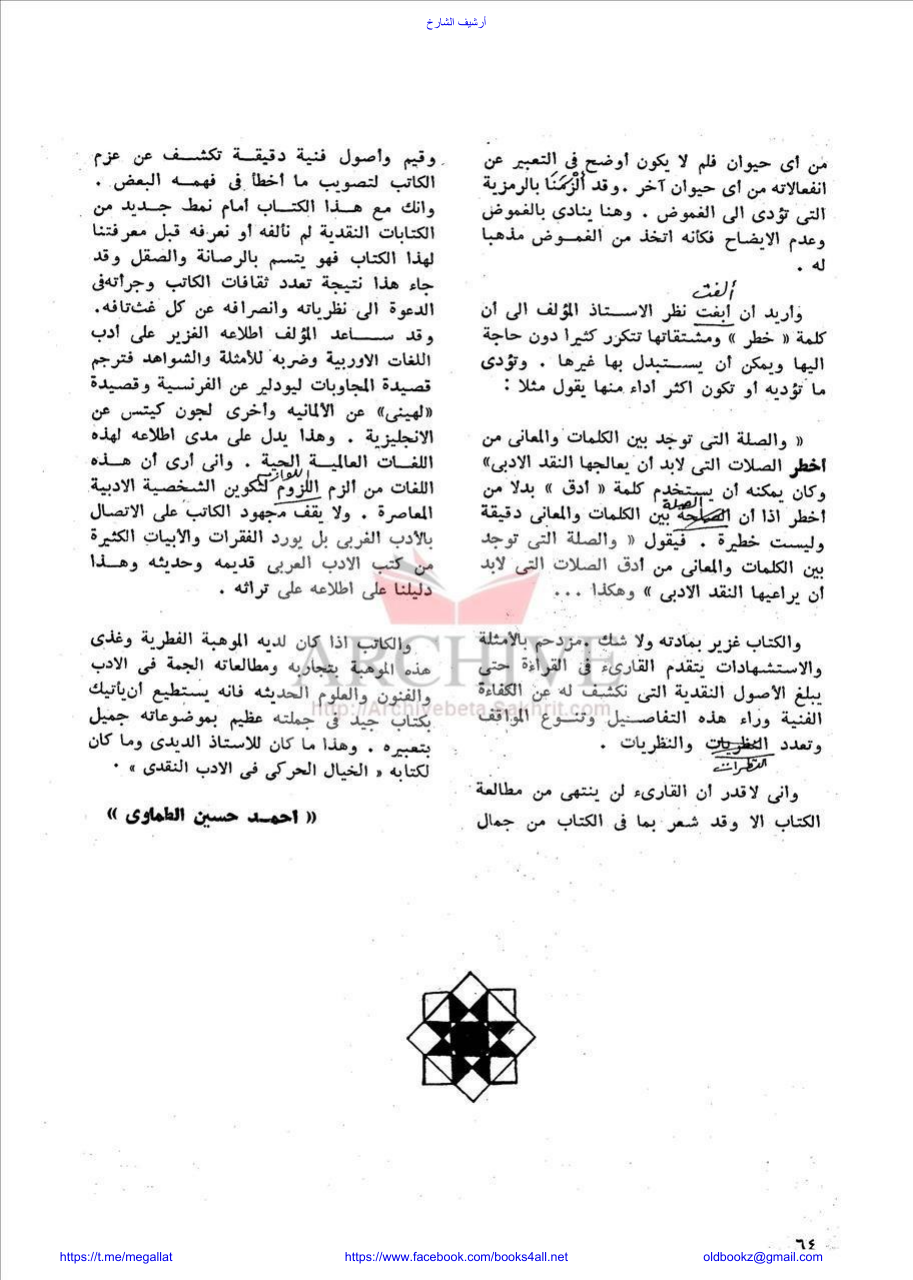 أرشيف الشارخ
من أى حيوان فلم لا يكون أوضح في التعبير عن
انفعالاته من أى حيوان آخر . وقد ألْزَمَنَا بالرمزية
التى تؤدى الى الغموض . وهنا ينادي بالغموض
وعدم الايضاح فكأنه اتخذ من الغمـوض مذهبا
له .
ألفت
وأريد ان أبفت نظر الاسـتاذ المؤلف الى أن
كلمة « خطر » ومشتقاتها تتكرر كثيرا دون حاجة
اليها ويمكن أن يسـتبدل بها غيرها . وتؤدى
ما تؤديه او تكون اكثر اداء منها يقول مثلا :
« والصلة التى توجد بين الكلمات والمعانى من
أخطر الصلات التى لابد أن يعالجها النقد الادبى»
وكان يمكنه أن يستخدم كلمة « أدق » بدلا من
الصلة
أخطر اذا أن الصلحة بين الكلمات والمعانى دقيقة
وليست خطيرة . فيقول « والصلة التى توجد
بين الكلمات والمعانى من أدق الصلات التى لابد
أن يراعيها النقد الادبى » وهكذا ...
والكتاب غزير بمادته ولا شك ومزدحم بالأمثلة
والاستشهادات يتقدم القارىء فى القراءة حتى
يبلغ الأصول النقدية التى نكشف له عن الكفاءة
الفنية وراء هذه التفاصـيل وتنـوع المواقف
وتعدد النظريات والنظريات .
النظرات
وانى لاقدر أن القارىء لن ينتهى من مطالعة
الكتاب الا وقد شعر بما فى الكتاب من جمال
وقيم وأصول فنية دقيقـة تكشـف عن عزم
الكاتب لتصويب ما أخطأ فى فهمـه البعض .
وانك مع هـذا الكتـاب أمام نمط جـديد من
الكتابات النقدية لم نألفه أو نعرفه قبل معرفتنا
لهذا الكتاب فهو يتسم بالرصانة والصقل وقد
جاء هذا نتيجة تعدد ثقافات الكاتب وجرأتهفى
الدعوة الى نظرياته وانصرافه عن كل غث تافه.
وقد سـاعد المؤلف اطلاعه الغزير على أدب
اللغات الاوربية وضربه للأمثلة والشواهد فترجم
قصيدة المجاوبات ليودلير عن الفرنسية وقصيدة
«لهينى» عن الألمانيه وأخرى لجون كيتس عن
الانجليزية . وهذا يدل على مدى اطلاعه لهذه
اللغـات العالميـة الحية . وانى أرى أن هـذه
اللوازم
اللغات من ألزم اللزوم لتكوين الشـخصية الادبية
المعاصرة . ولا يقف مجهود الكاتب على الاتصال
بالأدب الغربى بل يورد الفقرات والأبيات الكثيرة
من كتب الادب العربى قديمه وحديثه وهـذا
دليلنا على اطلاعه على تراثه .
والكاتب اذا كان لديه الموهبة الفطرية وغذى
هذه الموهبة بتجاربه ومطالعاته الجمة فى الادب
والفنون والعلوم الحديثه فانه يستطيع أن يأتيك
بكتاب جيد فى جملته عظيم بموضوعاته جميل
بتعبيره . وهذا ما كان للاستاذ الديدى وما كان
لكتابه « الخيال الحركى فى الادب النقدى » .
« احمـد حسين الطماوى »
ARCHIVE
http://Archivebeta.Sakhrit.com
٦٤
https://t.me/megallat
https://www.facebook.com/books4all.net
oldbookz@gmail.com